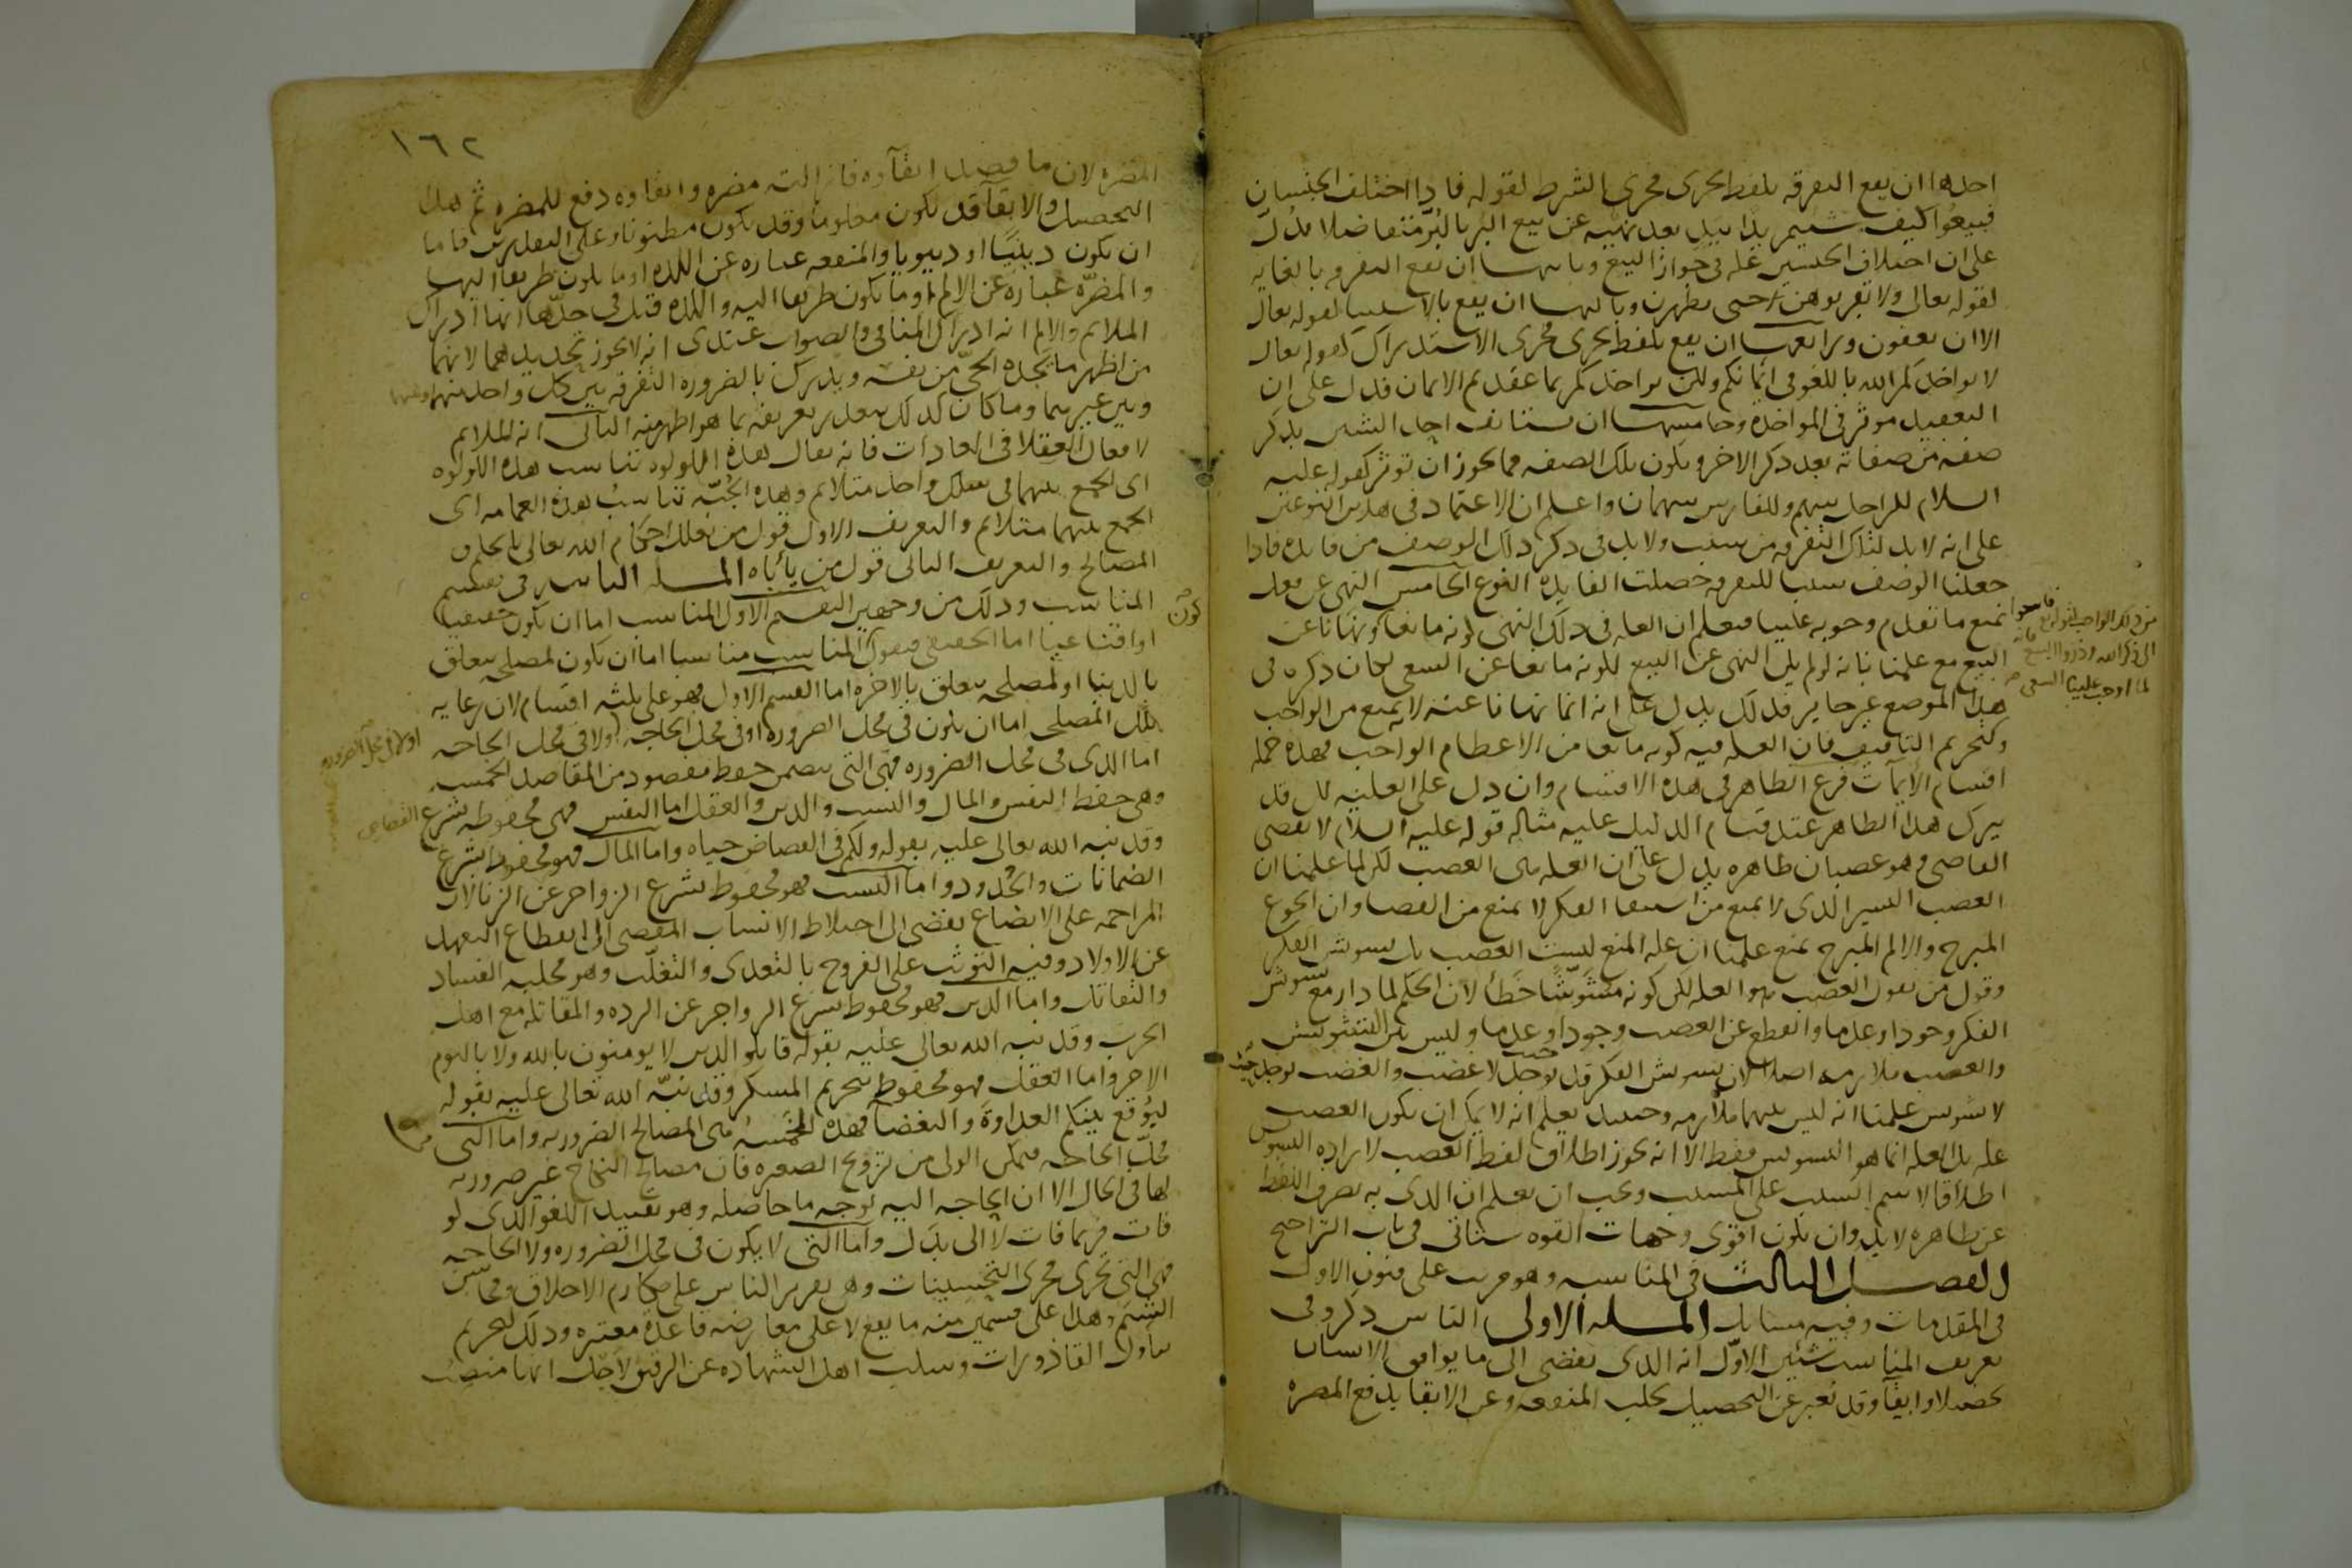 احدها ان يقع التفرقة بلفظ يجرى مجرى الشرط لقوله فاذا اختلف الجنسان
فبيعوا كيف شيتم يدا بيد بعد نهيه عن بيع البر بالبر متفاضلا فدل
على ان اختلاف الجنسين علة فى جواز البيع وثانيها ان تقع التفرقة بالغاية
لقوله تعالى ولا تقربوهن حتى يطهرن وثالثها ان يقع بالاستثنا لقوله تعالى
الا ان يعفون ورابعها ان يقع بلفظ يجرى مجرى الاستدراك كقوله تعالى
لا يواخذكم الله باللغو فى ايمانكم ولكن يواخذكم بما عقدتم الايمان فدل على ان
التعقيد موثر فى المواخذة وخامسها ان يستانف احد الشيين بذكر
صفة من صفاته بعد ذكر الاخر وتكون تلك الصفة مما يجوز ان توثر كقوله عليه
السلام للراجل سهم وللفارس سهمان واعلم ان الاعتماد فى هذين النوعين
على انه لا بد لتلك التفرقة من سبب ولا بد فى ذكر ذلك الوصف من فايدة فاذا
جعلنا الوصف سببا للتفرقة حصلت الفايدة النوع الخامس النهى عن فعل
يمنع ما تقدم وجوبه علينا فيعلم ان العلة فى ذلك النهى كونه مانعا ونهانا عن
من ذلك الواجب لقوله تع فاسعوا
الى ذكر الله وذروا البيع فانه
لما اوجب علينا السعى
البيع مع علمنا بانه لو لم يكن النهى عن البيع لكونه مانعا عن السعى لكان ذكره فى
هذا الموضع غير جايز فذلك يدل على انه انما نهانا عنه لانه يمنع من الواجب
وكتحريم التافيف فان العلة فيه كونه مانعا من الاعظام الواجب فهذه جملة
اقسام الايمآات فرع الظاهر فى هذه الاقسام وان دل على العلية لكن قد
يترك هذا الظاهر عند قيام الدليل عليه مثاله قوله عليه السلام لا يقضى
القاضى وهو غضبان ظاهره يدل على ان العلة هى الغضب لكن لما علمنا ان
الغضب اليسير الذى لا يمنع من استيفا الفكر لا يمنع من القضا وان الجوع
المبرح والالم المبرح يمنع علمنا ان علة المنع ليست الغضب بل تشويش الفكر
وقول من يقول الغضب هو العلة لكن كونه مشوشا خطأ لان الحكم لما دار مع تشويش
الفكر وجودا وعدما وانقطع عن الغضب وجودا وعدما وليس بين التشويش
والغضب ملازمة اصلا لان تشويش الفكر قد يوجد حيث لا غضب والغضب يوجد حيث
لا تشويش علمنا انه ليس بينهما ملازمة وحينيذ نعلم انه لا يمكن ان يكون الغضب
علة بل العلة انما هو التشويش فقط الا انه يجوز اطلاق لفظ الغضب لارادة التشويش
اطلاقا لاسم السبب على المسبب ويجب ان يعلم ان الذى به يصرف اللفظ
عن ظاهره لا بد وان يكون اقوى وجهات القوة ستاتى فى باب التراجيح
الفصل الثالث فى المناسبة وهو مرتب على فنون الاول
فى المقدمات وفيه مسايل المسلة الاولى الناس ذكروا فى
تعريف المناسب شيين الاول انه الذى يفضى الى ما يوافق الانسان
تحصيلا وابقآ وقد يعبر عن التحصيل بجلب المنفعة وعن الابقا بدفع المضرة
١٦٢
المضرة لان ما قصد ابقآوه فازالته مضرة وابقاوه دفع للمضرة ثم هذا
التحصيل والابقآ قد يكون معلوما وقد يكون مظنونا وعلى التقديرين فاما
ان يكون دينيا او دنيويا والمنفعة عبارة عن اللذة او ما يكون طريقا اليها
والمضرة عبارة عن الالم او ما يكون طريقا اليه واللذة قيل فى حدها انها ادراك
الملايم والالم انه ادراك المنافى والصواب عندى انه لا يجوز تحديدهما لانهما
من اظهر ما يجده الحى من نفسه ويدرك بالضرورة التفرقة بين كل واحد منهما وبينهما
وبين غيرهما وما كان كذلك يتعذر تعريفه بما هو اظهر منه الثانى انه الملايم
لافعال العقلا فى العادات فانه يقال هذه اللولوة تناسب هذه اللولوة
اى الجمع بينهما فى سلك واحد متلايم وهذه الجبة تناسب هذه العمامة اى
الجمع بينهما متلايم والتعريف الاول قول من يعلل احكام الله تعالى بالحكم و
المصالح والتعريف الثانى قول من يأباه المسلة الثانية فى تقسيم
المناسب وذلك من وجهين التقسيم الاول المناسب اما ان يكون حقيقيا
كون
او اقناعيا اما الحقيقى فنقول المناسب مناسبا اما ان يكون لمصلحة يتعلق
بالدنيا او لمصلحة يتعلق بالاخرة اما القسم الاول فهو على ثلثة اقسام لان رعاية
تلك المصلحة اما ان يكون فى محل الضرورة او فى محل الحاجة او لا فى محل الحاجة
او لا فى محل الضرورة
اما الذى فى محل الضرورة فهى التى يتضمن حفظ مقصود من المقاصد الخمسة
وهى حفظ النفس والمال والنسب والدين والعقل اما النفس فهى محفوظة بشرع القصاص
وقد نبه الله تعالى عليه بقوله ولكم فى القصاص حياة واما المال فهو محفوظ بشرع
الضمانات والحدود واما النسب فهو محفوظ بشرع الزواجر عن الزنا لان
المزاحمة على الابضاع يفضى الى اختلاط الانساب المفضى الى انقطاع التعهد
عن الاولاد وفيه التوثب على الفروج بالتعدى والتغلب وهو مجلبة الفساد
والتقاتل واما الدين فهو محفوظ بشرع الزواجر عن الردة والمقاتلة مع اهل
الحرب وقد نبه الله تعالى عليه بقوله قاتلوا الذين لا يومنون بالله ولا باليوم
الاخر واما العقل فهو محفوظ بتحريم المسكر وقد نبه الله تعالى عليه بقوله
ليوقع بينكم العداوة والبغضآ فهذه الخمسة هى المصالح الضرورية واما التى فى
محل الحاجة فتمكين الولى من تزويج الصغيرة فان مصالح النكاح غير ضرورية
لها فى الحال الا ان الحاجة اليه بوجه ما حاصلة وهو تقييد الكفو الذى لو
فات فربما فات لا الى بدل واما التى لا يكون فى محل الضرورة ولا الحاجة
فهى التى تجرى مجرى التحسينات وهى تقرير الناس على مكارم الاخلاق ومحاسن
الشيم وهذا على قسمين منه ما يقع لا على معارضة قاعدة معتبرة وذلك كتحريم
تناول القاذورات وسلب اهل الشهادة عن الرقيق لاجل انها منصب